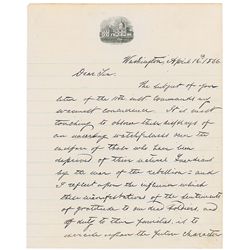 Washington, April 16th 1866
Dear Sir.
The subject of your
letter of the 11th inst commands my
warmest concurrence. It is most
touching to observe these displays of
an unceasing watchfulness over the
welfare of those who have been
deprived of their natural Guardians
by the war of the rebellion: and
I reflect upon the influence which
these manifestations of the sentiments
of gratitude to our dead Soldiers and
of duty to their families, is to
exercise upon the future character